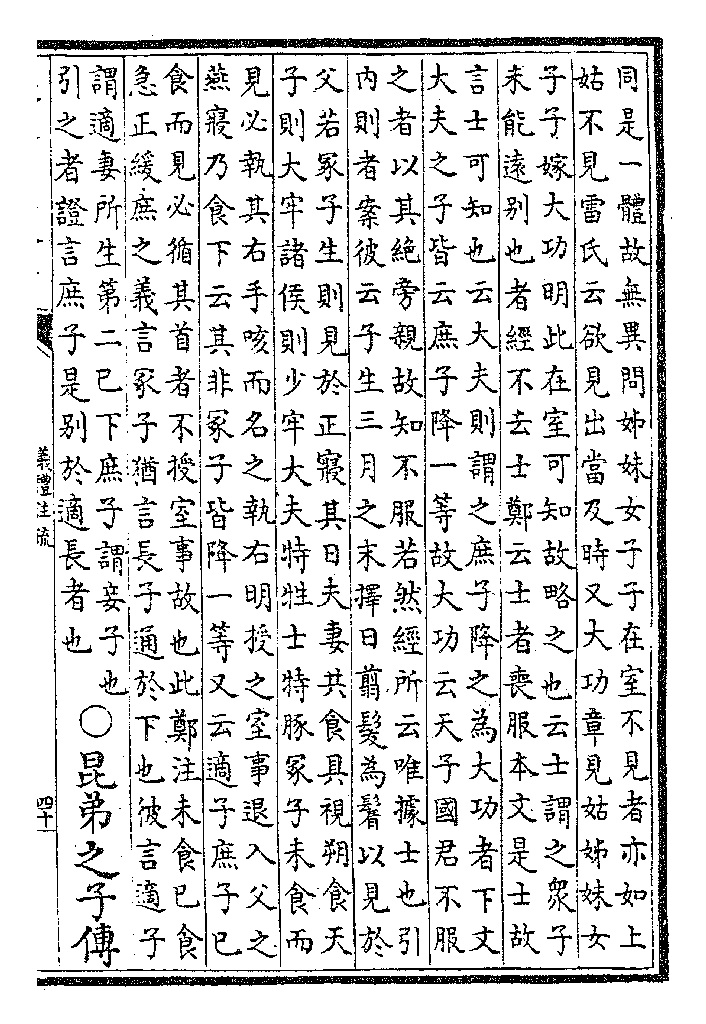 同是一體故無異問姊妹女子子在室不見者亦如上
姑不見雷氏云欲見出當及時又大功章見姑姊妹女
子子嫁大功明此在室可知故略之也云士謂之衆子
未能遠别也者經不去士鄭云士者喪服本文是士故
言士可知也云大夫則謂之庶子降之為大功者下文
大夫之子皆云庶子降一等故大功云天子國君不服
之者以其絶旁親故知不服若然經所云唯據士也引
内則者案彼云子生三月之末擇日翦髮為鬌以見於
父若冢子生則見於正寢其日夫妻共食具視朔食天
子則大牢諸侯則少牢大夫特牲士特豚冢子未食而
見必執其右手咳而名之執右明授之室事退入父之
燕寢乃食下云其非冢子皆降一等又云適子庶子已
食而見必循其首者不授室事故也此鄭注未食已食
急正緩庶之義言冢子猶言長子通於下也彼言適子
謂適妻所生第二已下庶子謂妾子也
引之者證言庶子是别於適長者也
○昆弟之子傳
義禮注疏
四十